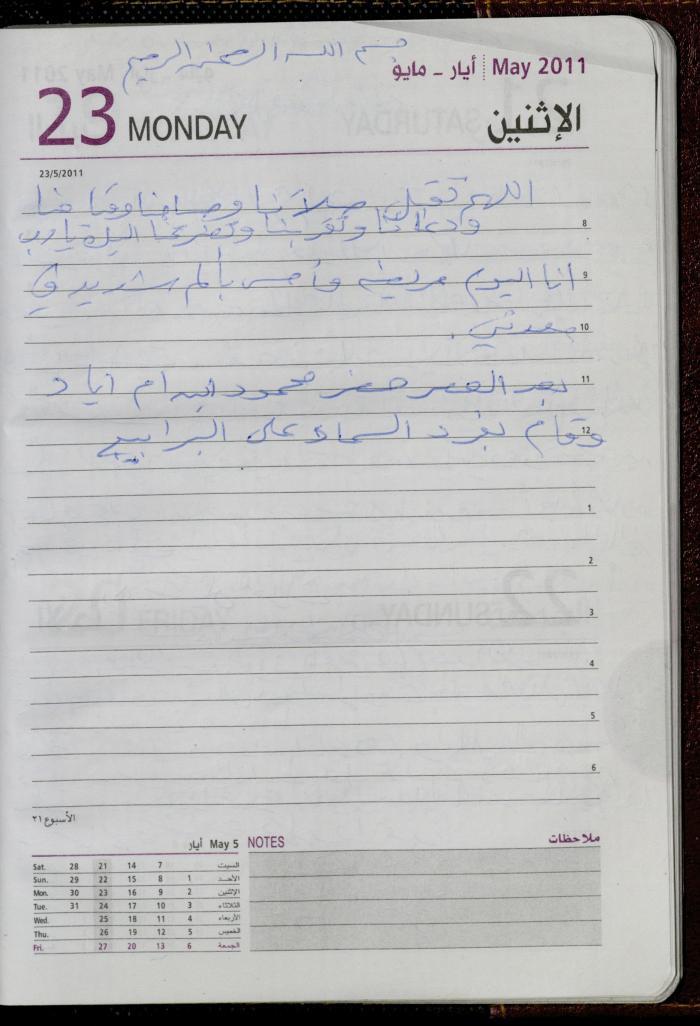 بسم الله الرحمن الرحيم
May 2011 أيار - مايو
23 MONDAY الإثنين
23/5/2011
اللهم تقبل صلاتنا وصيامنا وقيامنا
8
ودعائنا وتقربنا وتضرعنا إليك يا رب
انا اليوم مريضة وأحس بألم شديد في
9
معدتي .
10
بعد العصر حضر محمود ابن ام اياد
11
وقام بفرد السماد على البرابيج
12
1
2
3
4
5
6
الأسبوع ٢١
May 5 أيار
Sat. 28 21 14 7 السبت
Sun. 29 22 15 8 1 الأحد
Mon. 30 23 16 9 2 الإثنين
Tue. 31 24 17 10 3 الثلاثاء
Wed. 25 18 11 4 الأربعاء
Thu. 26 19 12 5 الخميس
Fri. 27 20 13 6 الجمعة
NOTES ملاحظات